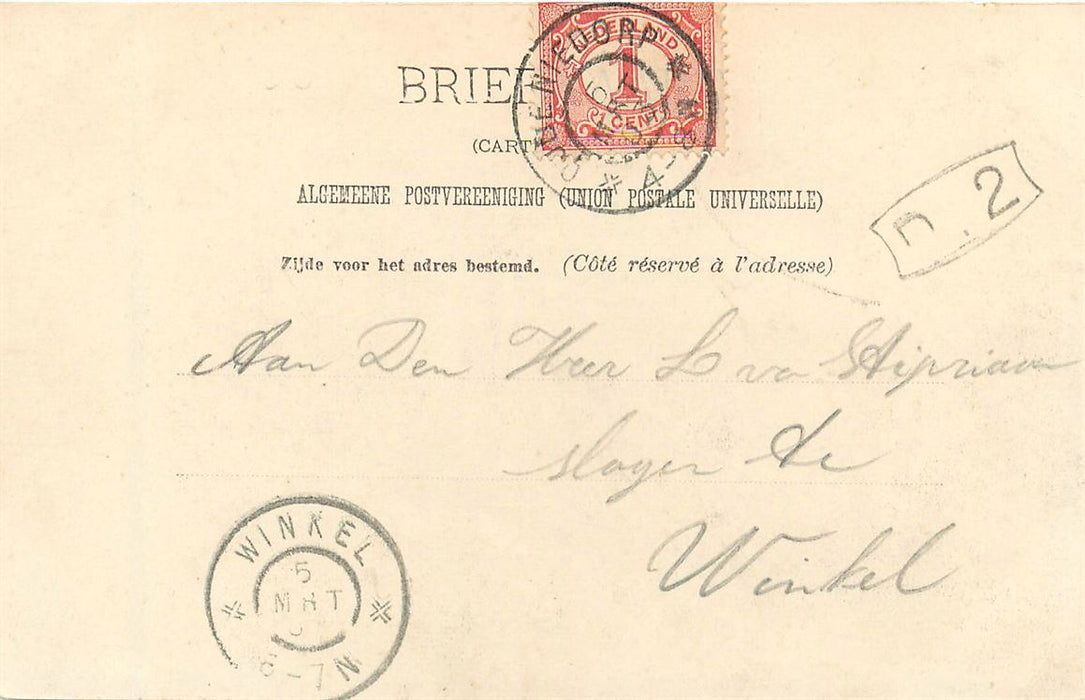 BRIEF
NEDERLAND
1
1 CENT
OUDE NIEDORP
4-8N
(CART
ALGEMEENE POSTVEREENIGING (UNION POSTALE UNIVERSELLE)
n.2
Zijde voor het adres bestemd. (Côté réservé à l'adresse)
Aan Den Heer L van Stipriaan
slager te
Winkel
WINKEL
5
MRT
6-7N